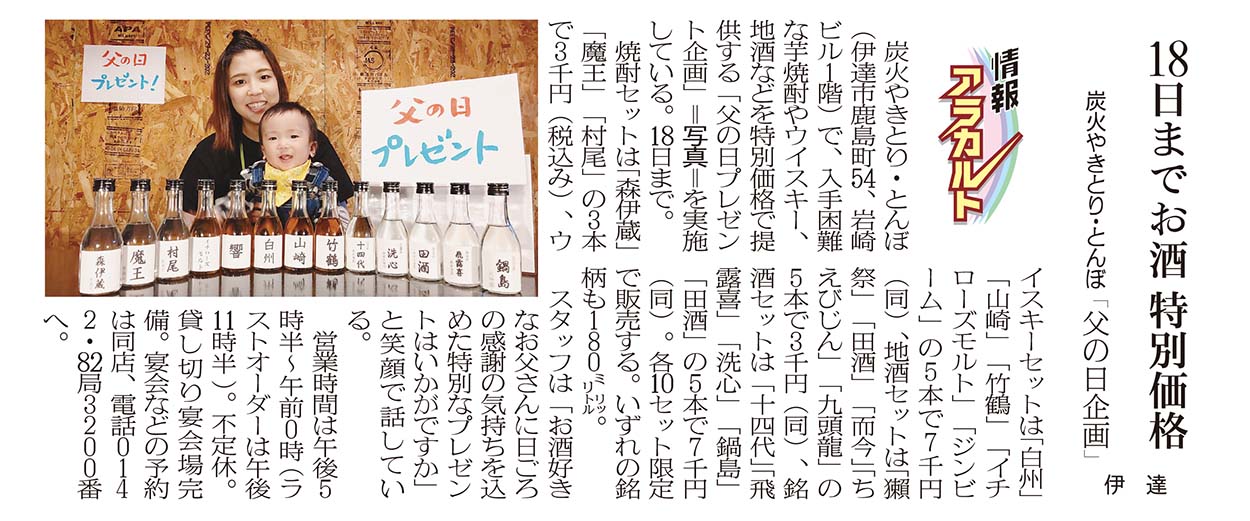 18日までお酒 特別価格
炭火やきとり・とんぼ「父の日企画」
伊達
情報
アラカルト
炭火やきとり・とんぼ
（伊達市鹿島町54、岩崎
ビル1階）で、入手困難
な芋焼酎やウイスキー、
地酒などを特別価格で提
供する「父の日プレゼン
ト企画」＝写真＝を実施
している。18日まで。
焼酎セットは「森伊蔵」
「魔王」「村尾」の3本
で3千円（税込み）、ウ
イスキーセットは「白州」
「山崎」「竹鶴」「イチ
ローズモルト」「ジンビ
ーム」の5本で7千円
（同）、地酒セットは「獺
祭」「田酒」「而今」「ち
えびじん」「九頭龍」の
5本で3千円（同）、銘
酒セットは「十四代」「飛
露喜」「洗心」「鍋島」
「田酒」の5本で7千円
（同）。各10セット限定
で販売する。いずれの銘
柄も180ミリリットル。
スタッフは「お酒好き
なお父さんに日ごろ
の感謝の気持ちを込
めた特別なプレゼン
トはいかがですか」
と笑顔で話してい
る。
営業時間は午後5
時半～午前0時（ラ
ストオーダーは午後
11時半）。不定休。
貸し切り宴会場完
備。宴会などの予約
は同店、電話014
2・82局3200番
へ。
APA
父の日
プレゼント！
父の日
プレゼント
森伊蔵
魔王
村尾
イチローズモルト
響
白州
山崎
竹鶴
十四代
洗心
田酒
飛露喜
鍋島